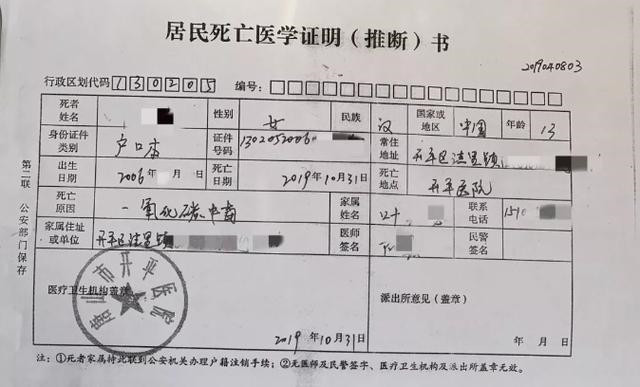 居民死亡医学证明（推断）书
2019040803
行政区划代码 130205 编号：
死者姓名 性别 女 民族 汉 国家或地区 中国 年龄 13
身份证件类别 户口本 证件号码 1302052006 常住地址 开平区洼里镇
出生日期 2006年 月 日 死亡日期 2019年10月31日 死亡地点 开平医院
死亡原因 一氧化碳中毒 家属姓名 叶 联系电话
家属住址或单位 开平区洼里镇 医师签名 民警签名
医疗卫生机构盖章
唐山市开平医院
派出所意见（盖章）
2019年10月31日
年 月 日
第二联 公安部门保存
注：①死者家属持此联到公安机关办理户籍注销手续；②无医师及民警签字、医疗卫生机构及派出所盖章无效。